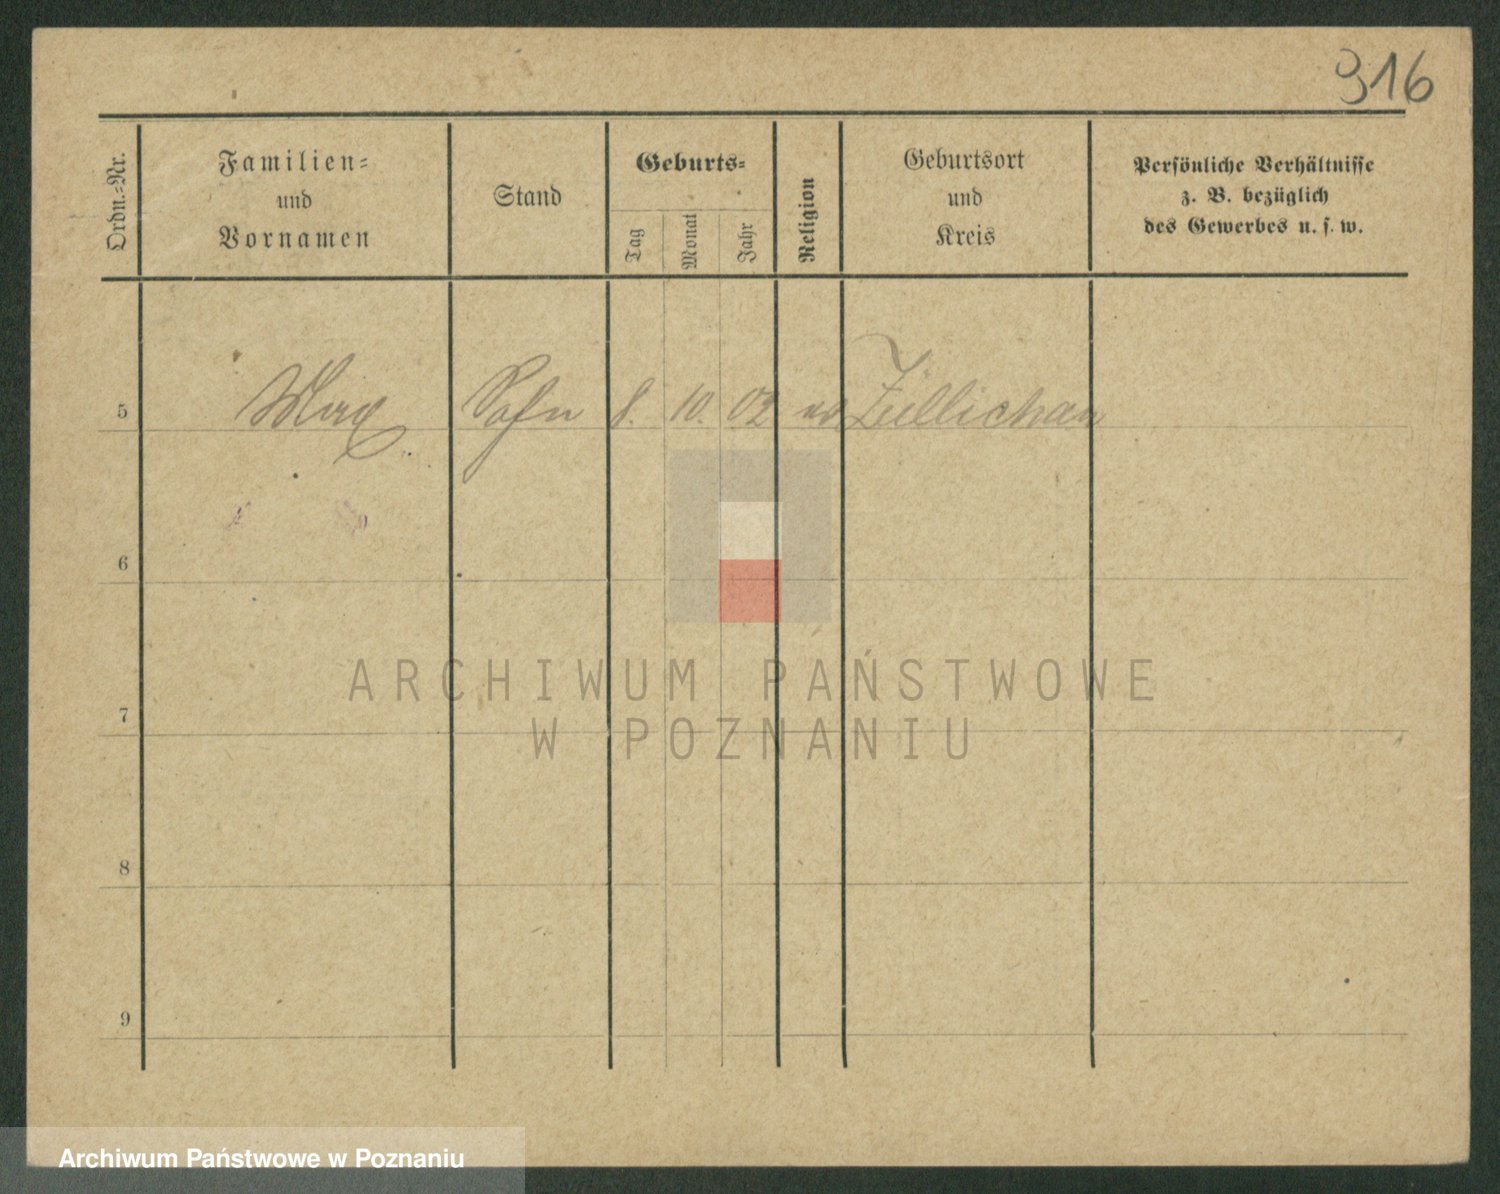 316
Ordn.-Nr.
Familien-
und
Vornamen
Stand
Geburts-
Tag
Monat
Jahr
Religion
Geburtsort
und
Kreis
Persönliche Verhältnisse
z. B. bezüglich
des Gewerbes u. s. w.
5 Max Sohn 8. 10. 02 Züllichau
6
7
8
9
ARCHIWUM PAŃSTWOWE
W POZNANIU
Archiwum Państwowe w Poznaniu